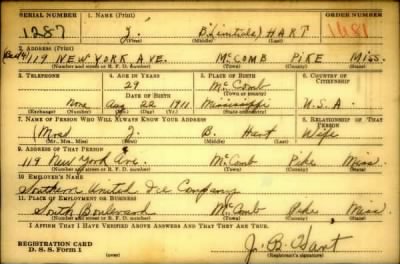 SERIAL NUMBER 1. NAME (Print) ORDER NUMBER
1287 J. B. (initials) HART 1681
(First) (Middle) (Last)
2. ADDRESS (Print)
119 NEW YORK AVE. McCOMB PIKE MISS.
(Number and street or R. F. D. number) (Town) (County) (State)
3. TELEPHONE 4. AGE IN YEARS 5. PLACE OF BIRTH 6. COUNTRY OF CITIZENSHIP
29 McComb
(Town)
None DATE OF BIRTH
Aug 22 1911 Mississippi U.S.A.
(Exchange) (Number) (Mo.) (Day) (Yr.) (State or country)
7. NAME OF PERSON WHO WILL ALWAYS KNOW YOUR ADDRESS 8. RELATIONSHIP OF THAT PERSON
(Mrs) J. B. Hart Wife
(Mr., Mrs., Miss) (First) (Middle) (Last)
9. ADDRESS OF THAT PERSON
119 New York Ave. McComb Pike Miss.
(Number and street or R. F. D. number) (Town) (County) (State)
10. EMPLOYER'S NAME
Southern United Ice Company
11. PLACE OF EMPLOYMENT OR BUSINESS
South Boulevard McComb Pike Miss
(Number and street or R. F. D. number) (Town) (County) (State)
I AFFIRM THAT I HAVE VERIFIED ABOVE ANSWERS AND THAT THEY ARE TRUE.
REGISTRATION CARD
D. S. S. Form 1
J. B. Hart
(Registrant's signature)